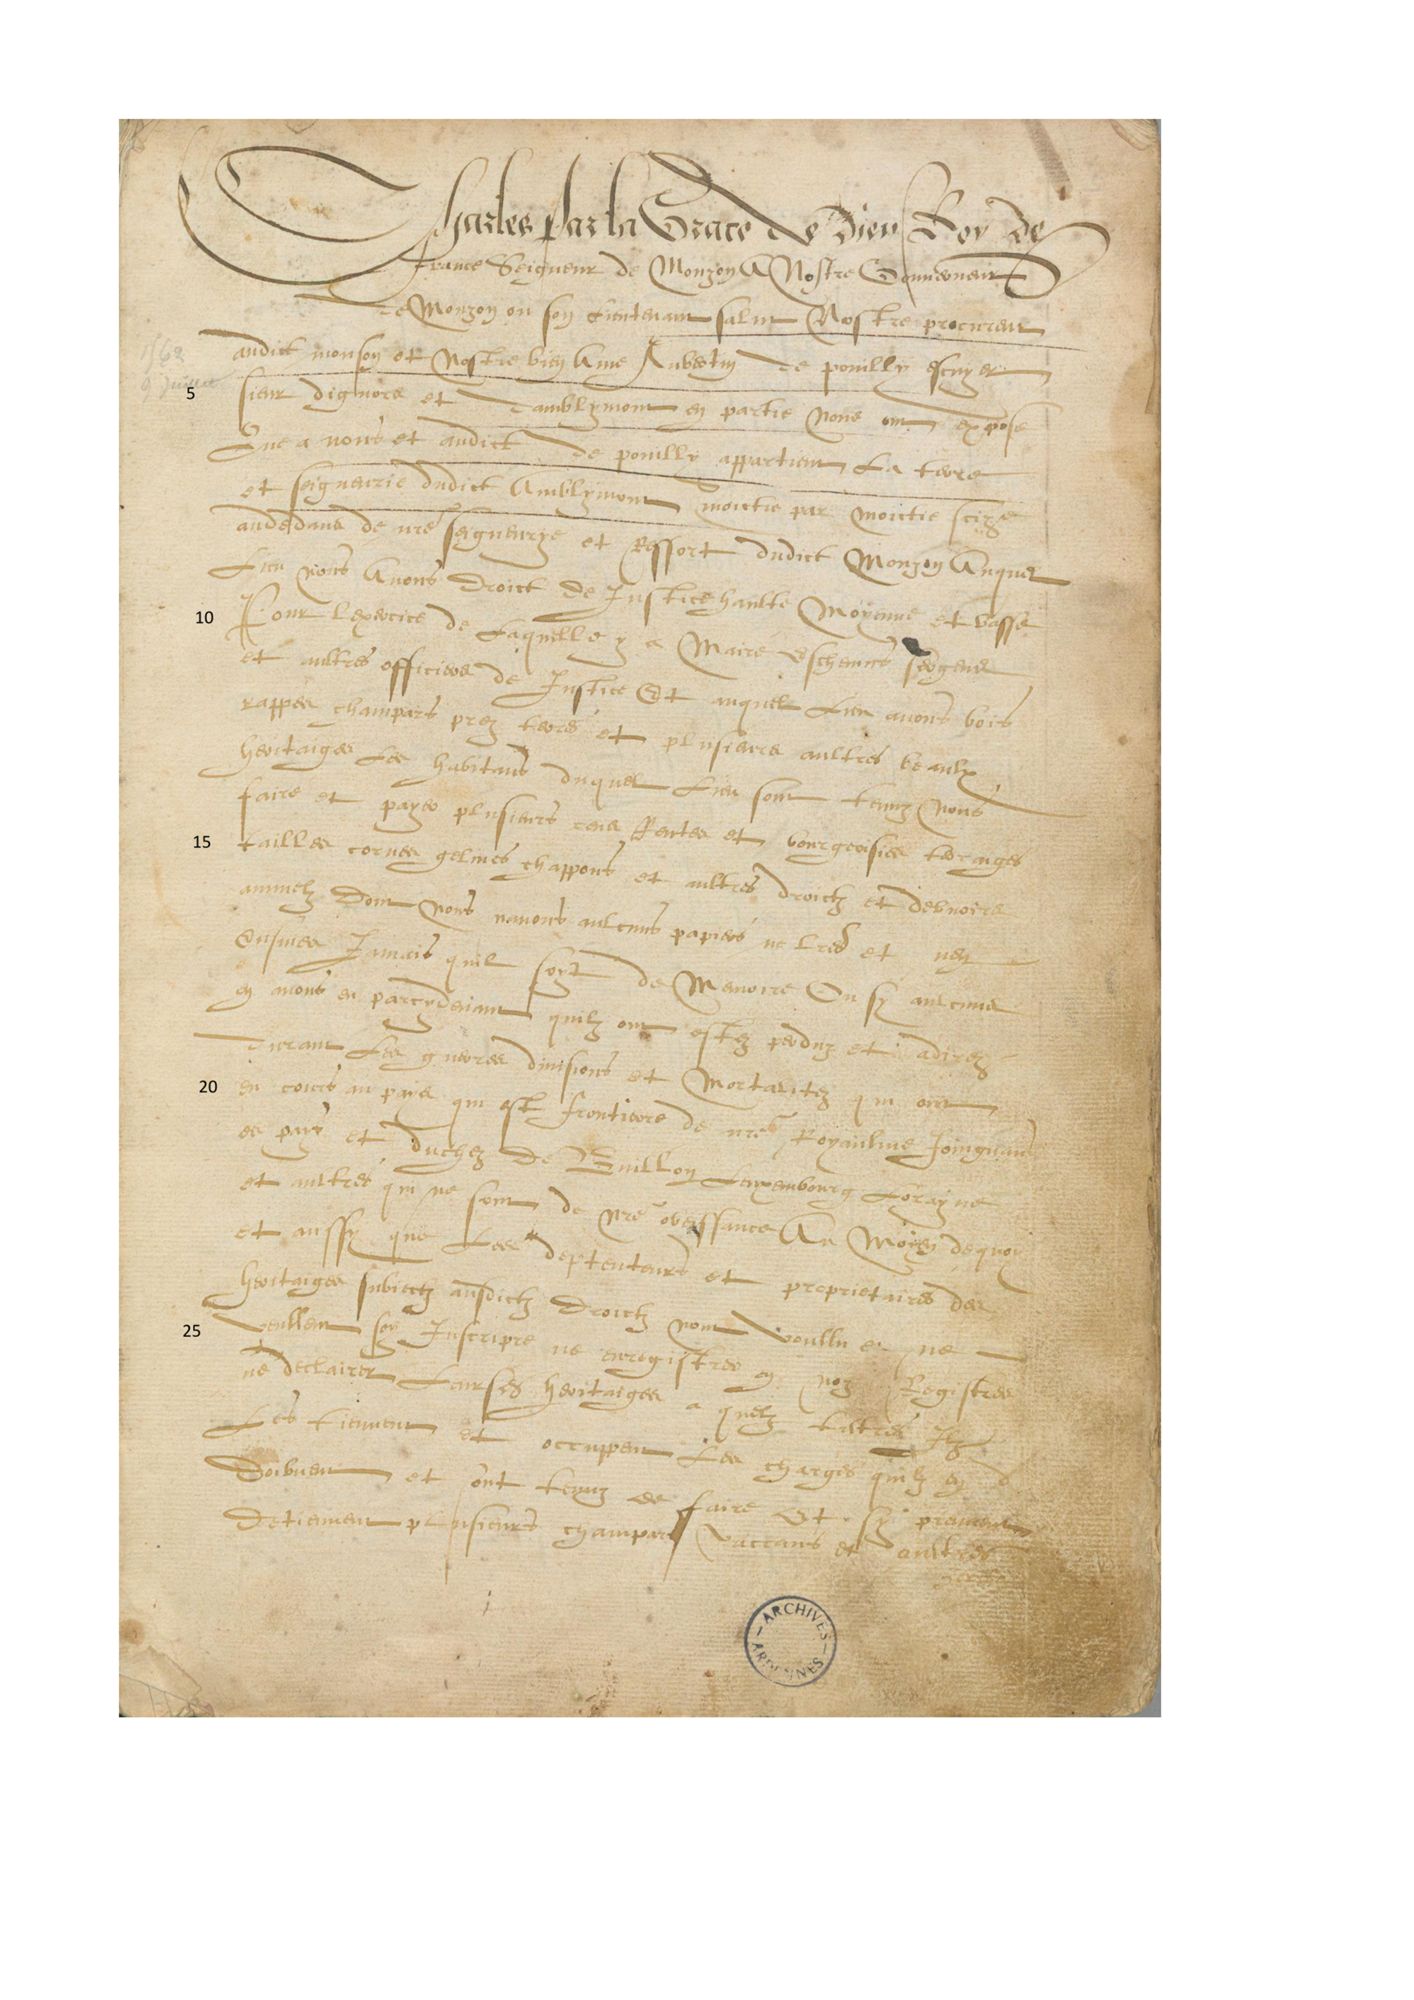 Charles par la Grace de Dieu Roy de
France Seigneur de Monzon A Nostre Gouverneur
de Monzon ou son Lieutenant salut Nostre procureur
1562
audict monson et Nostre bien Ame Aubertin de pouilly escuyer
9 Juillet
5
sieur dignore et damblymont en partie Nous ont expose
Que a nous et audict de pouilly appartient La terre
et seigneurie dudict Amblymont moictie par moictie scize
audedans de nre seigneurye et Ressort dudict Monzon Auquel
Lieu nous Avons Droict de Justice haulte Moyenne et basse
10
Pour lexercice de Laquelle y a Maire eschevins sergens
et aultres officiers de Justice Et auquel Lieu avons bois
rappes champars prez terres et plusieurs aultres beaulx
heritaiges Les habitans duquel Lieu sont tenuz Nous
faire et payer plusieurs cens Rentes et bourgeoisies terraiges
15
tailles corvees gelines chappons et aultres droictz et debvoirs
annuelz Dont Nous navons aulcuns papiers ne lres et nen
eusmes Jamais quil soyt de Memoire Ou sy aulcuns
en avons eu parcydevant quilz ont estez perduz et adirez
Durant Les guerres divisions et Mortalitez qui ont
20
eu cours au pays qui est frontiere de nre Royaulme Joingnant
es pays et duchez de Buillon Luxembourg Lorayne
et aultres qui ne sont de Nre obeissance Au Moyen dequoy
et aussy que Les deptenteurs et proprietaires des
heritaiges subiectz ausdictz Droictz nont voullu et ne
25
veullent soy Inscripre ne enregistrer en noz Registres
ne declairer Leursdz heritaiges a quelz tiltres Ilz
Les tiennent et occuppent Les charges quilz en
Doibvent et sont tenuz de faire Et sy prennent
Detiennent plusieurs champars vaccans et aultres
i
ARCHIVES
ARDENNES